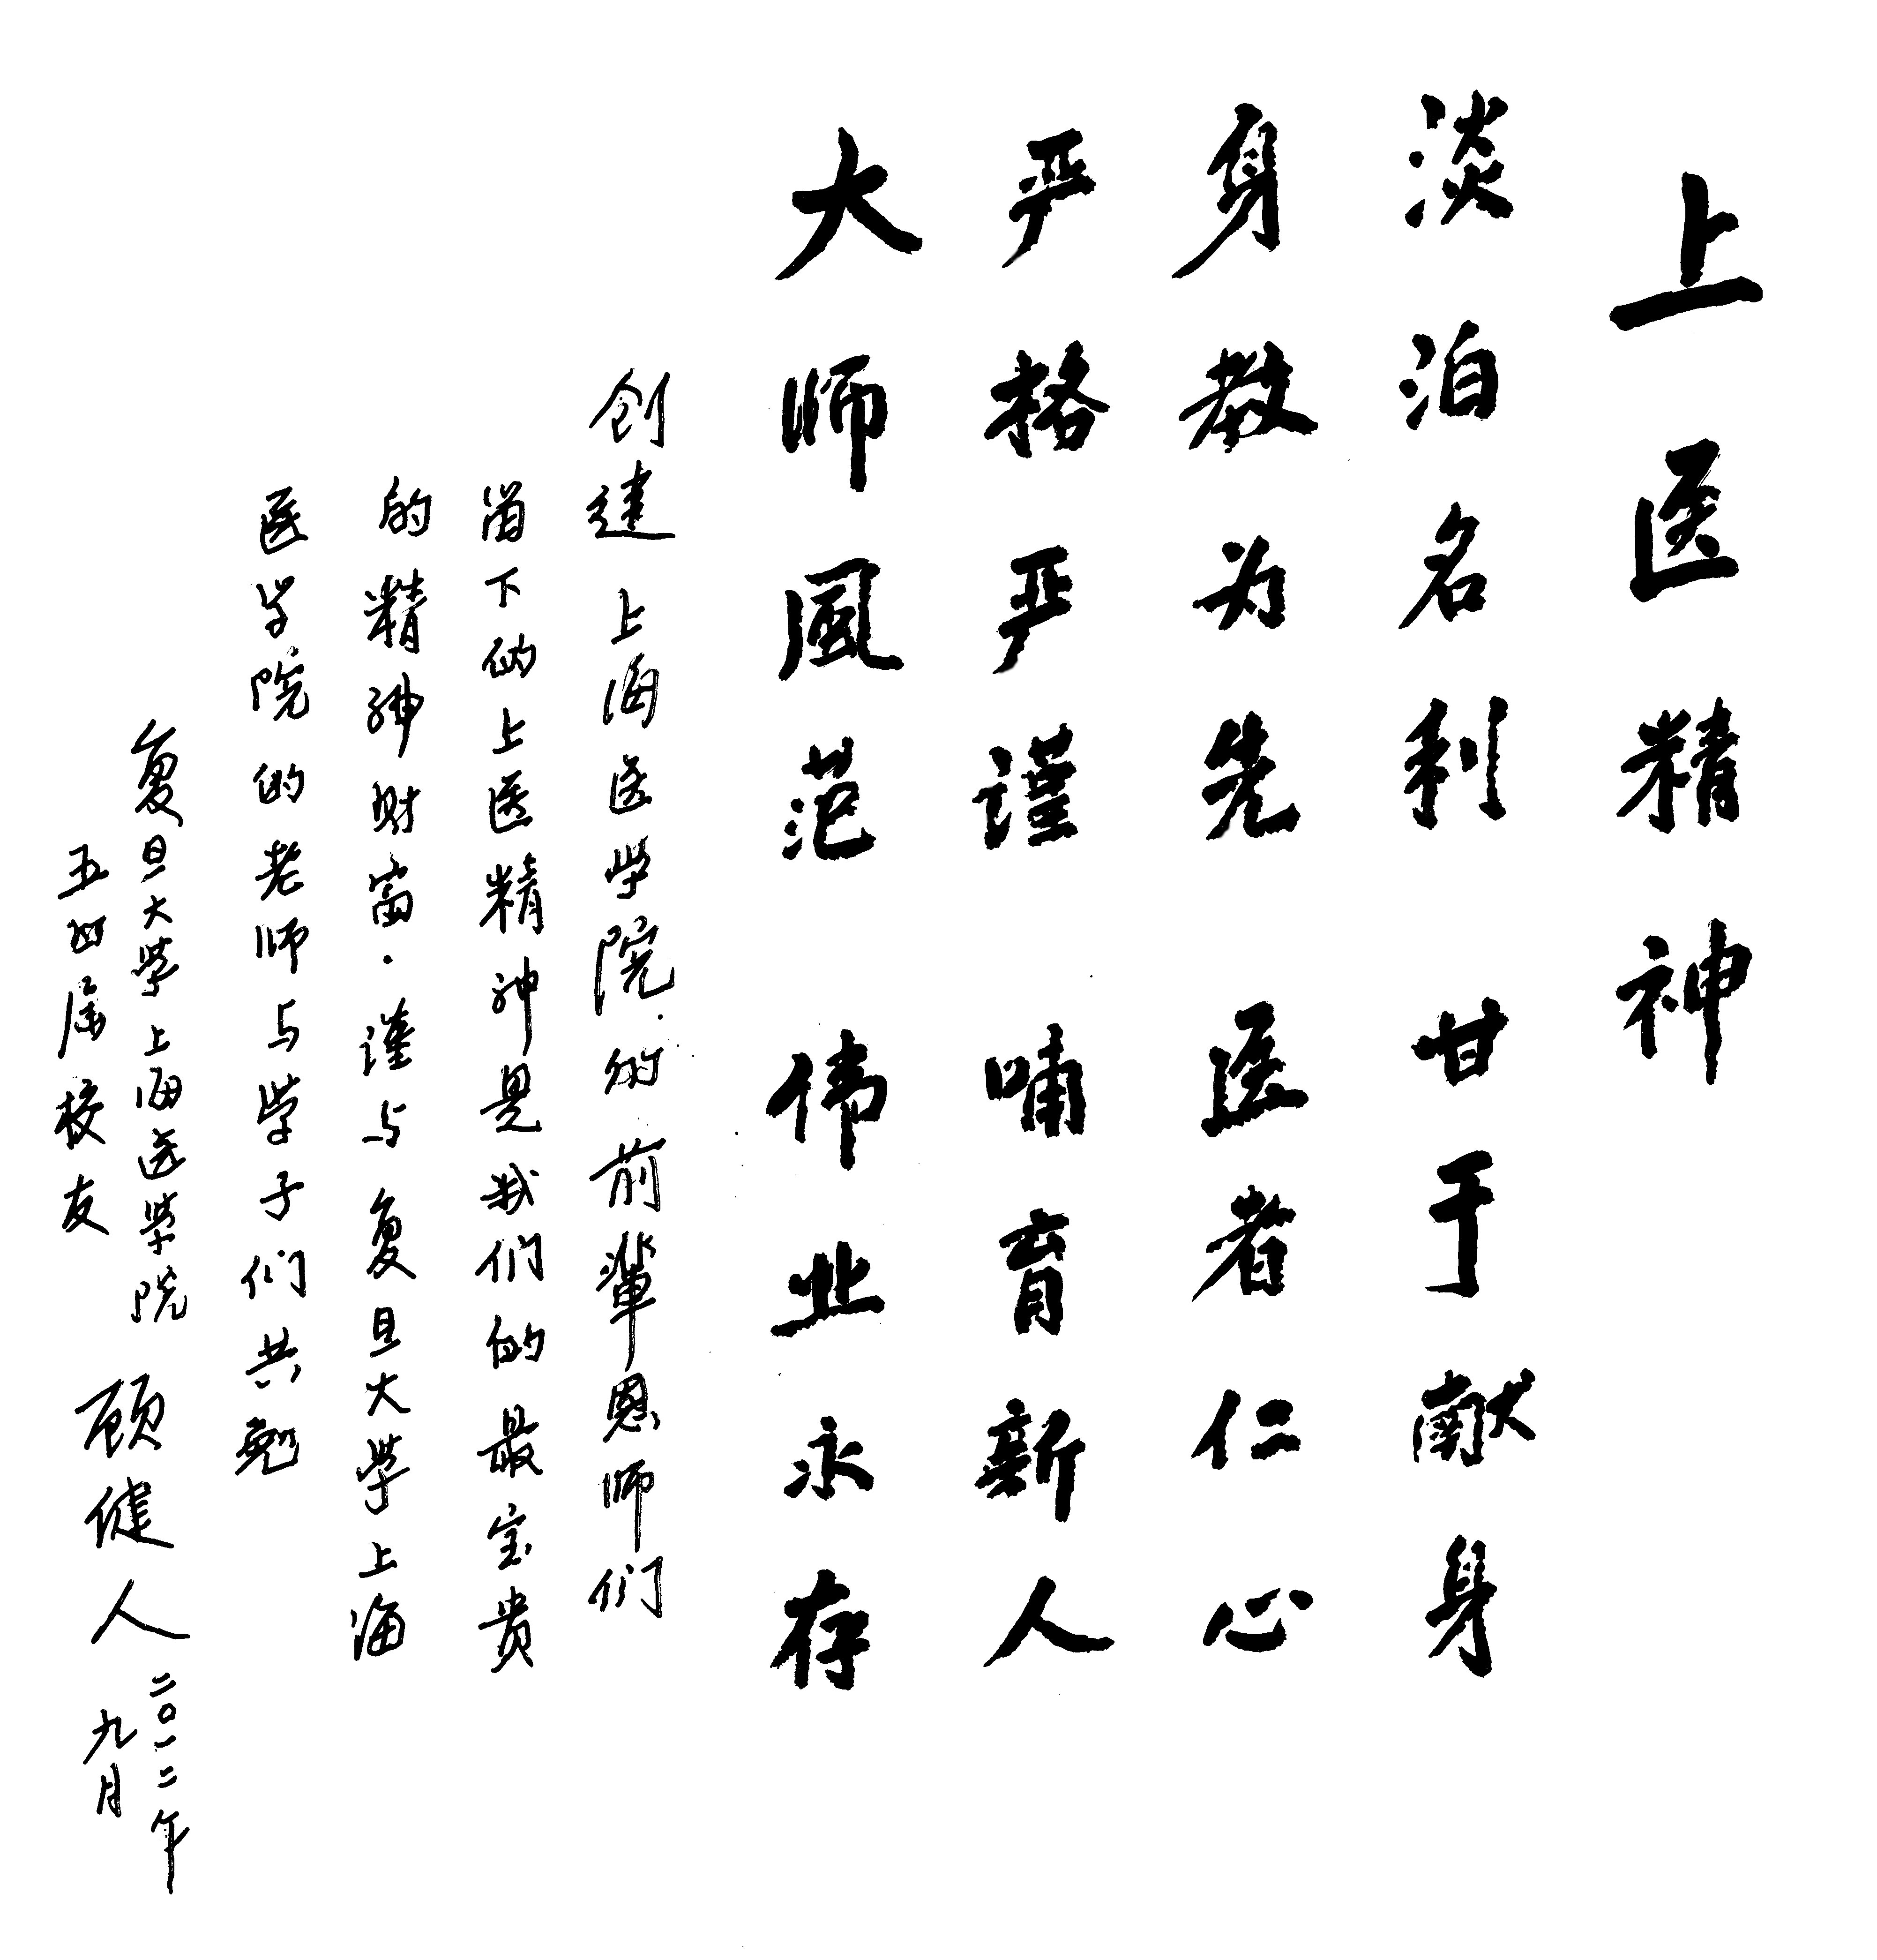 上医精神
淡泊名利 甘于献身
身教为先 医者仁心
严格严谨 哺育新人
大师风范 伟业永存
创建上海医学院的前辈恩师们
留下的上医精神是我们的最宝贵
的精神财富.谨与复旦大学上海
医学院的老师与学子们共勉
复旦大学上海医学院
五四届校友
顾健人
二〇一二年
九月